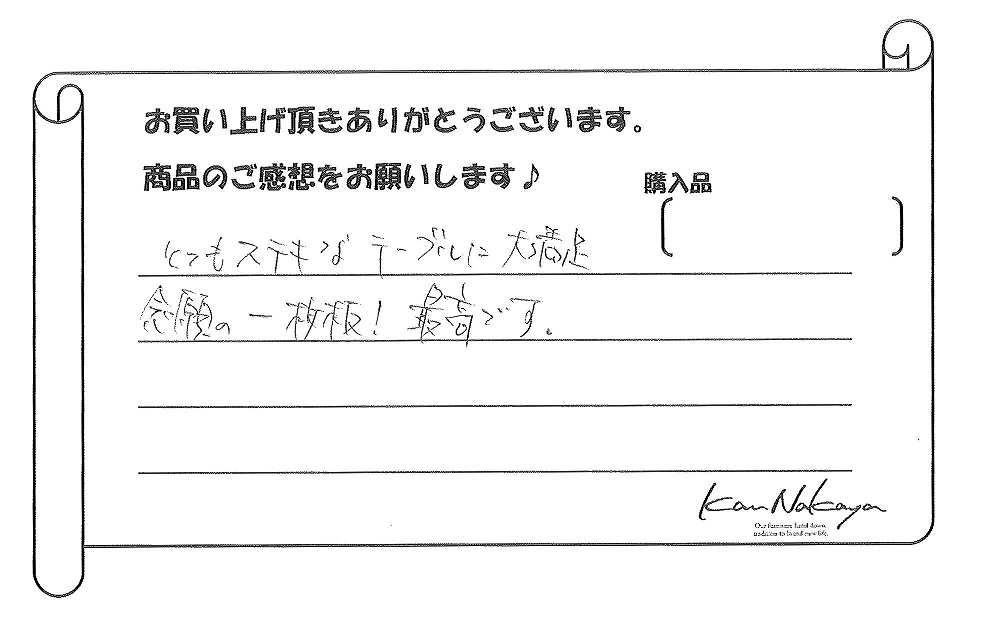 お買い上げ頂きありがとうございます。
商品のご感想をお願いします♪
購入品
とてもステキな テーブルに 大満足
念願の 一枚板! 最高です。
Kan Nakaya
Our furniture hand down,
tradition to bread new life.